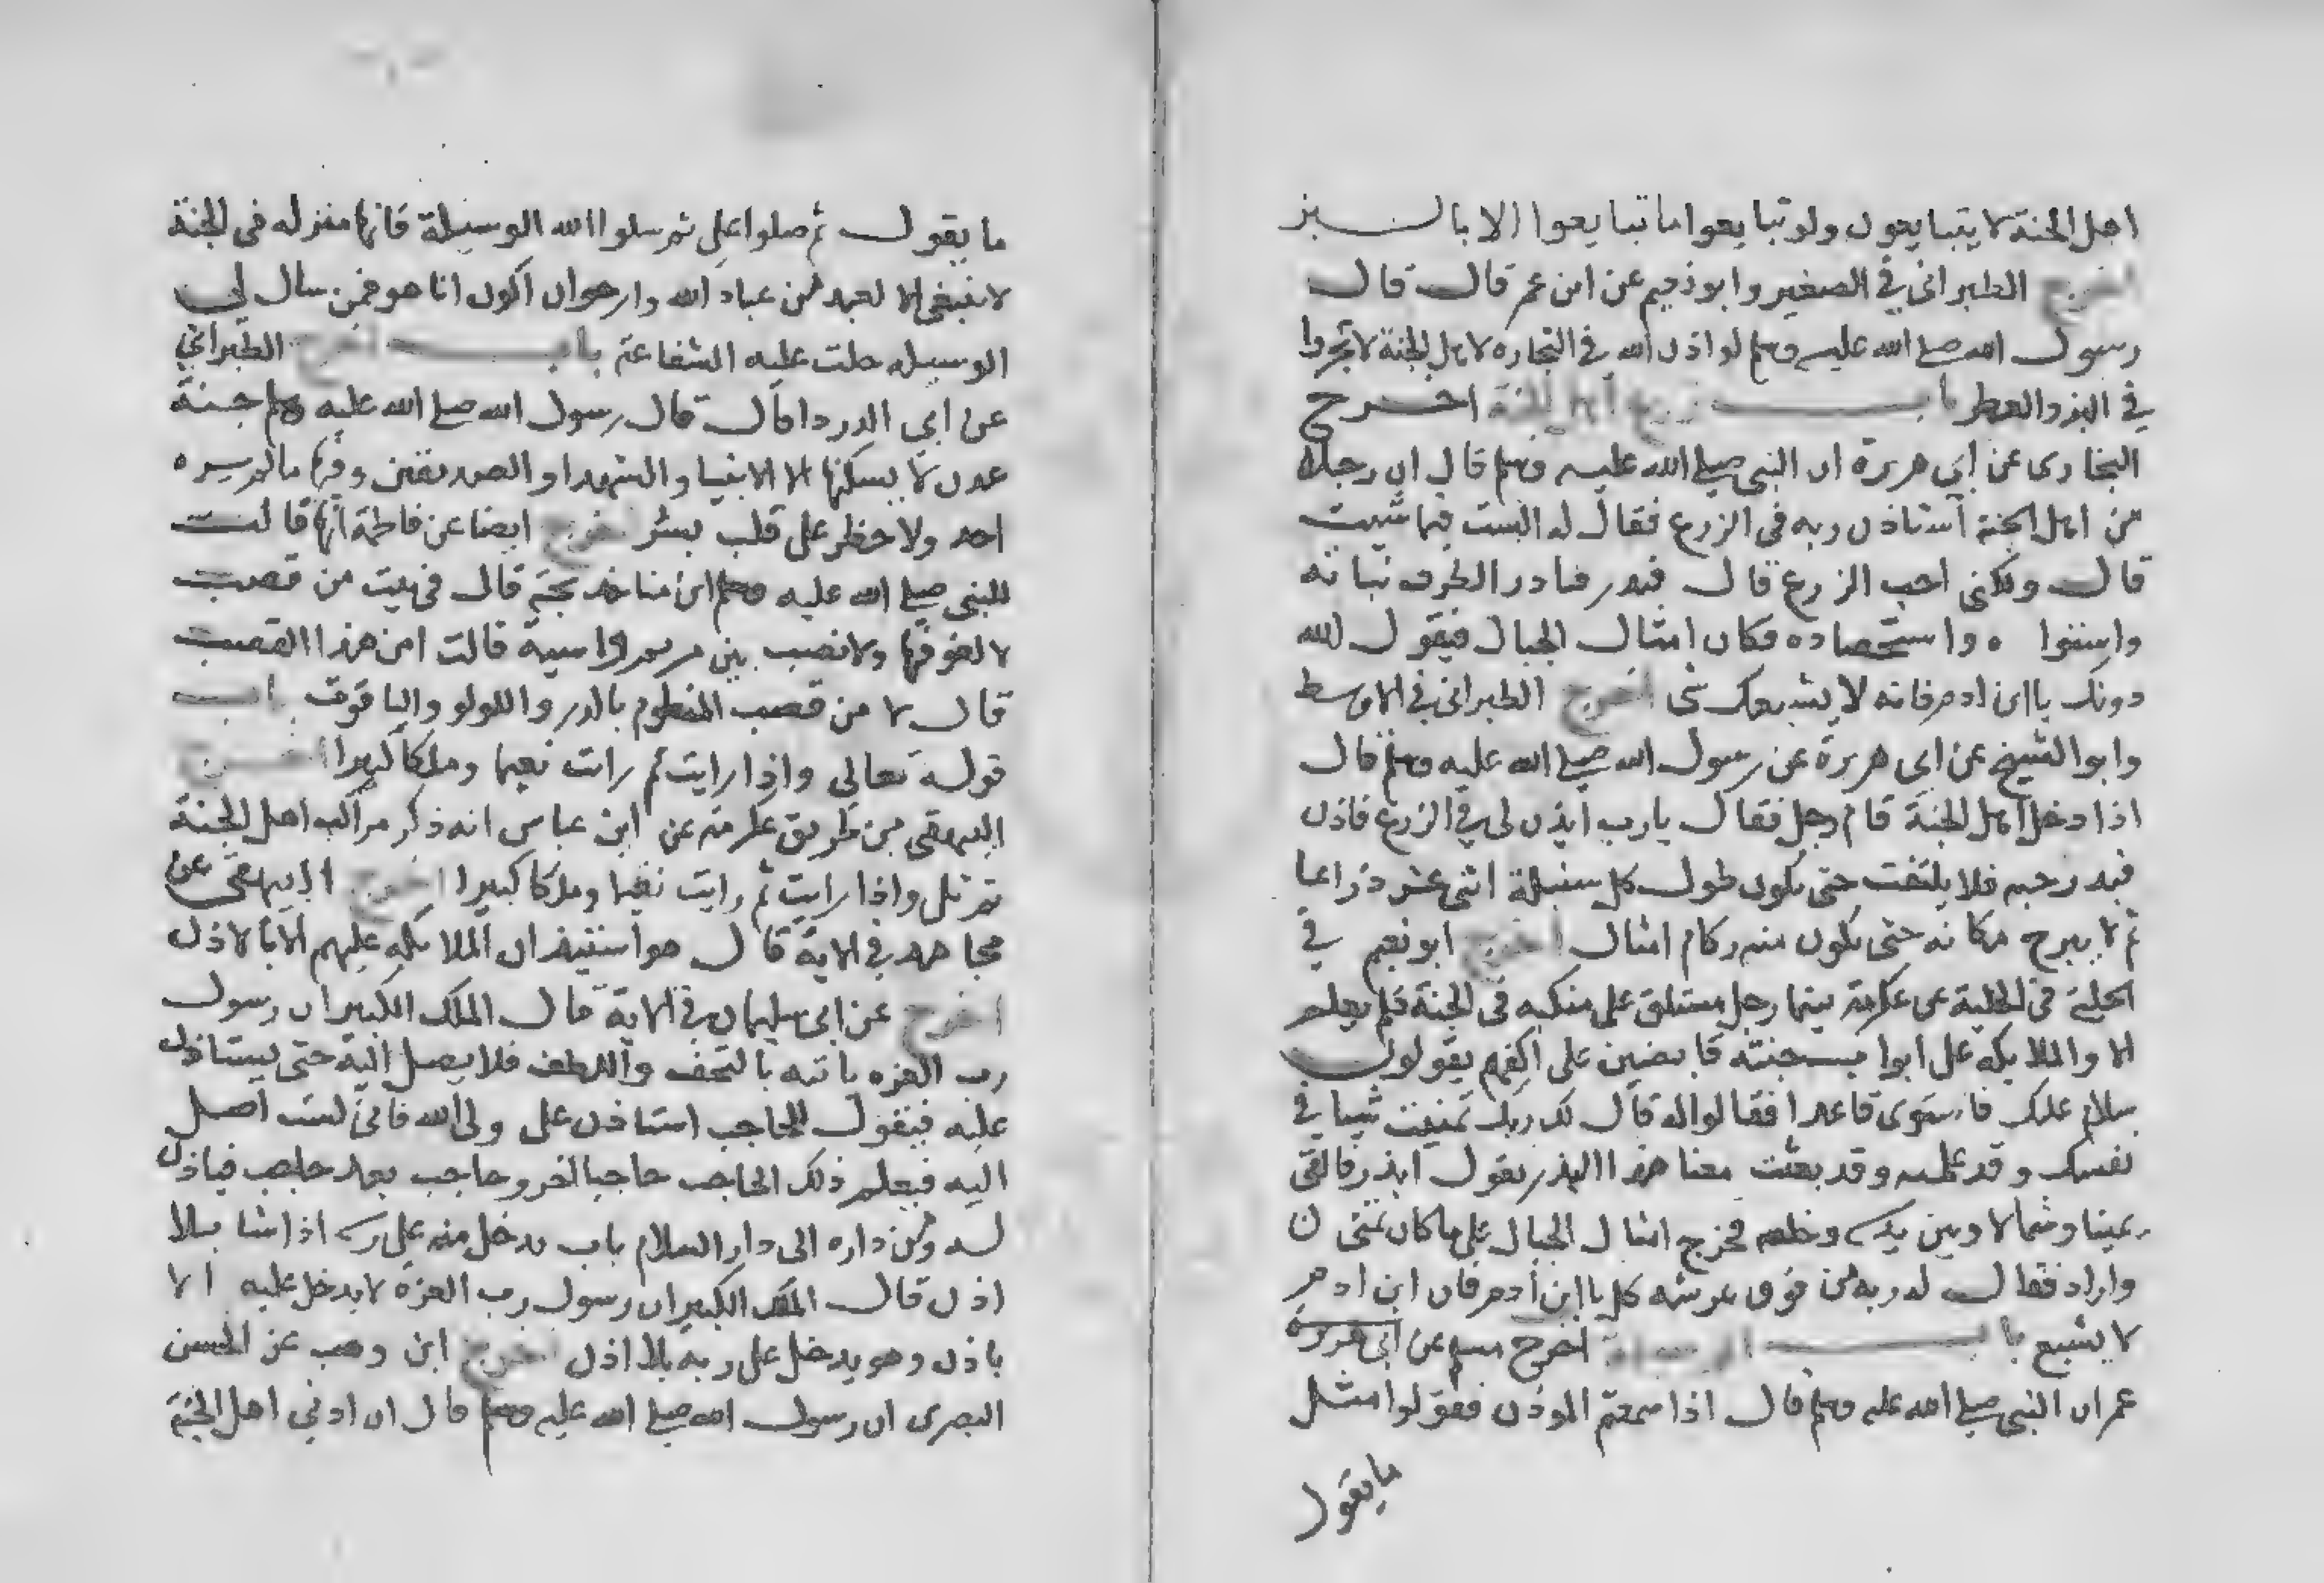 اهل الجنة لا يتبايعون ولو تبايعوا ما تبايعوا الا بالبز
اخرج الطبراني في الصغير وابو نعيم عن ابن عمر قال قال
رسول الله صلى الله عليه وسلم لو اذن الله في التجاره لاهل الجنة لاتجروا
في البز والعطر باب زرع اهل الجنة اخرج
البخاري عن ابي هريرة ان النبي صلى الله عليه وسلم قال ان رجلا
من اهل الجنة استاذن ربه في الزرع فقال له الست فيما شيت
قال ولكني احب الزرع قال فبدر فبادر الطرف نباته
واستوا ه واستحصاده فكان امثال الجبال فيقول الله
دونك يا ابن ادم فانه لا يشبعك شي اخرج الطبراني في الاوسط
وابو الشيخ عن ابي هريرة عن رسول الله صلى الله عليه وسلم قال
اذا دخل اهل الجنة قام رجل فقال يا رب ايذن لي في الزرع فاذن
فيه فلا يلتفت حتى يكون طول كل سنبلة اثنى عشر ذراعا
ثم لا يبرح مكانه حتى يكون منه ركام امثال اخرج ابو نعيم في
الحلية عن عكرمة بينما رجل مستلق على منكبه في الجنة فلم يعلم
الا والملايكه على ابواب جنته قابضين على اكفهم يقولون
سلام عليك فاستوى قاعدا فقالوا له قال لك ربك تمنيت شيا في
نفسك وقد علمه وقد بعثت معنا هذا البذر يقول ابذر فالقى
يمينا وشمالا وبين يديه وخلفه فخرج امثال الجبال على ما كان تمنى
واراد فقال له ربه من فوق عرشه كل يا ابن ادم فان ابن ادم
لا يشبع باب الوسيلة اخرج مسلم عن ابي هريرة
عمر ان النبي صلى الله عليه وسلم قال اذا سمعتم الموذن فقولوا مثل
ما يقول
ما يقول ثم صلوا على ثم سلوا الله الوسيلة فانها منزله في الجنة
لا تنبغي الا لعبد من عباد الله وارجو ان اكون انا هو فمن سال لي
الوسيله حلت عليه الشفاعة باب اخرج الطبراني
عن ابي الدردا قال قال رسول الله صلى الله عليه وسلم جنة
عدن لا يسكنها الا الانبيا والشهدا والصديقين وفيها ما لم يره
احد ولا خطر على قلب بشر اخرج ايضا عن فاطمة انها قالت
للنبي صلى الله عليه وسلم اين امنا خديجة قال في بيت من قصب
لا لغو فيها ولا نصب بين مريم واسية قالت امن هذا القصب
قال لا من قصب المنظوم بالدر واللولو والياقوت باب
قوله تعالى واذا رايت ثم رايت نعيما وملكا كبيرا اخرج
البيهقي من طريق عكرمة عن ابن عباس انه ذكر مراكب اهل الجنة
ثم تلى واذا رايت ثم رايت نعيما وملكا كبيرا اخرج البيهقي عن
مجاهد في الاية قال هو استيذان الملايكه عليهم الا باذن
اخرج عن ابي سليمان في الاية قال الملك الكبير ان رسول
رب العزه ياتيه بالتحف واللطف فلا يصل اليه حتى يستاذن
عليه فيقول للحاجب استاذن على ولي الله فاني لست اصل
اليه فيعلم ذلك الحاجب حاجبا اخر وحاجب بعد حاجب فياذن
له ومن داره الى دار السلام باب يدخل منه على ربه اذا شا بلا
اذن قال الملك الكبير ان رسول رب العزة لا يدخل عليه الا
باذن وهو يدخل على ربه بلا اذن اخرج ابن وهب عن الحسن
البصري ان رسول الله صلى الله عليه وسلم قال ان ادني اهل الجنة